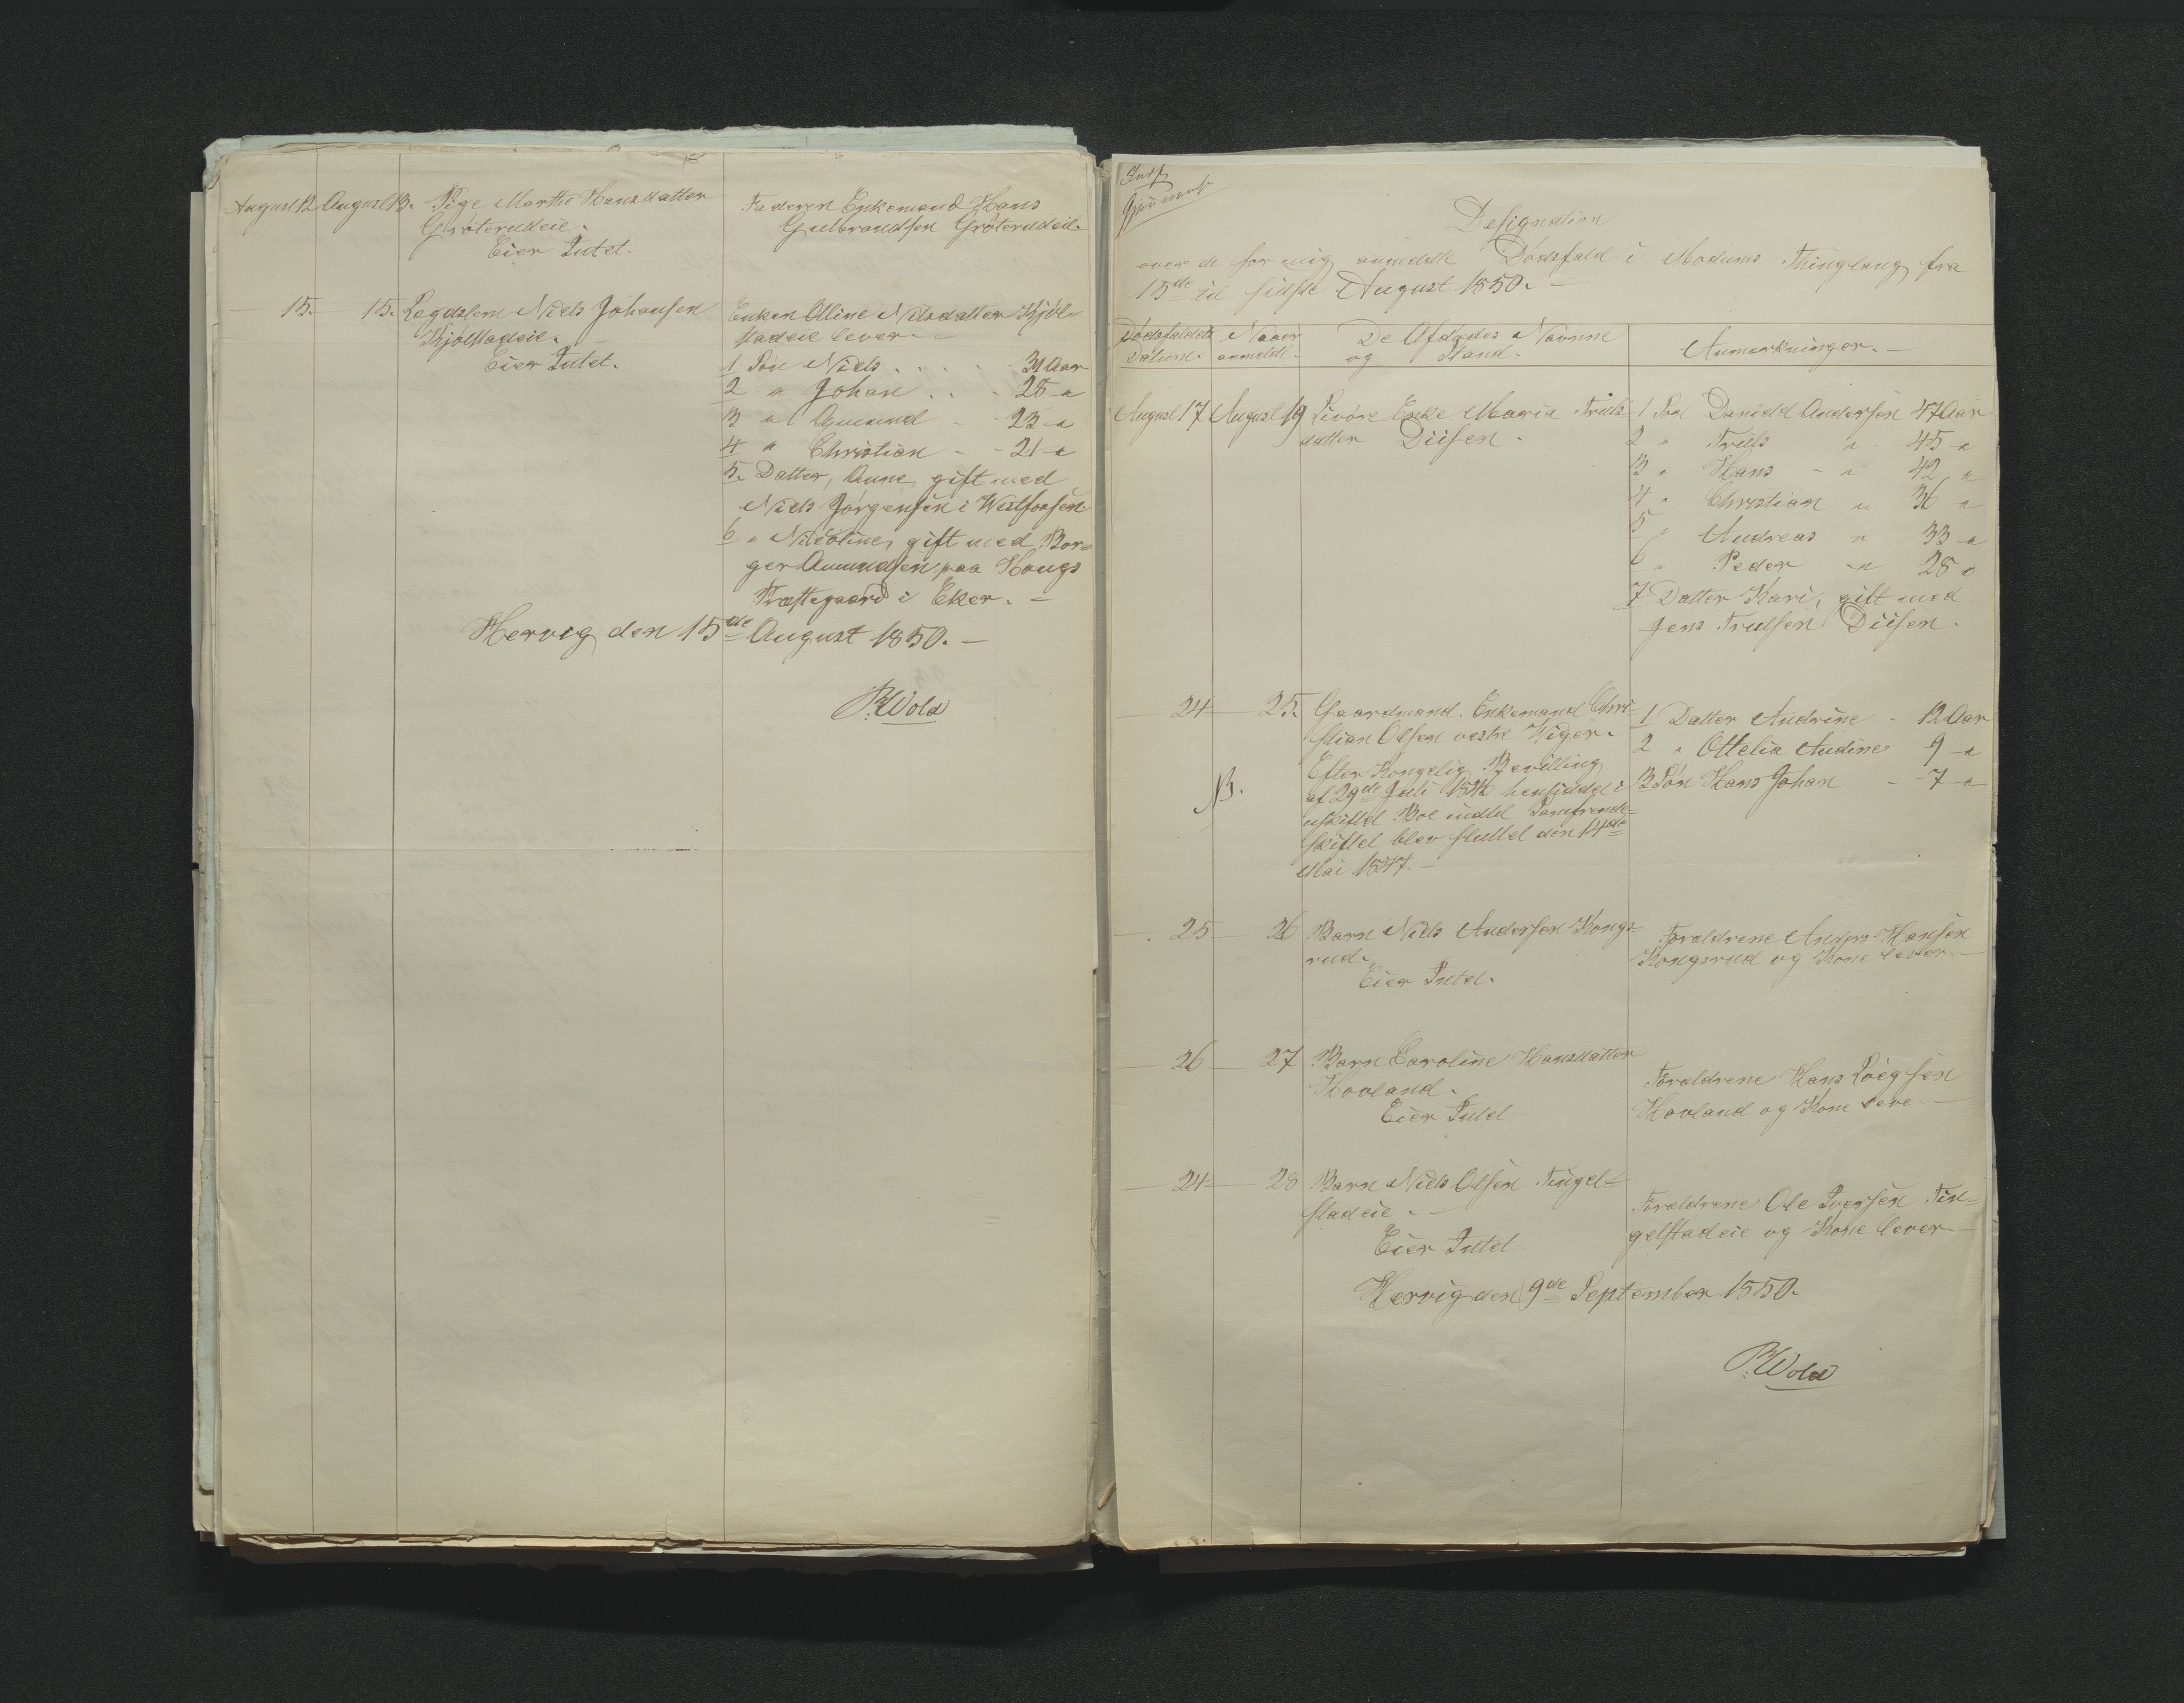 August 12 August 13. Pige Marthe Hansdatter
Gröterudeie.
Eier Intet.
Faderen Enkemand Hans
Gulbrandsen Gröterudeie.
15. 15. Lægdslem Niels Johansen
Kjölstadeie.
Eier Intet.
Enken Oline Nilsdatter Kjöl-
stadeie lever. —
1 Sön Niels . . . . 31 Aar
2 " Johan . . - 28 "
3 " Amund - 23 "
4 " Christian - - 21 "
5. Datter, Anne, gift med
Niels Jörgensen i Westfossen
6 " Nicoline, gift med Bor-
ger Amundsen paa Hougs
Præstegaard i Eker. —
Hervig den 15de August 1850. —
P. Wold
Designation
over de for mig anmeldte Dödsfald i Modums Thinglaug fra
15de til sidste August 1850. —
Dödsfaldets
Datum.
Naar
anmeldt.
De Afdödes Navne
og Stand.
Anmærkninger. —
August 17 August 19 Livöre Enke Maria Truls-
datter Diisen.
1 Sön Daniel Andersen 47 Aar
2 " Truls " 45 "
3 " Hans - " 42 "
4 " Christian " 36 "
5 " Andreas " 33 "
6 " Peder " 28 "
7 Datter Kari, gift med
Jens Trulsen Diisen.
24 25. Gaardmand. Enkemand Chri-
stian Olsen vestre Wiger.
Efter Kongelig Bevilling
af 29de Juli 1842 hensiddet i
uskiftet Boe indtil Samfrænde-
skiftet blev sluttet den 14de
Mai 1847. —
NB.
1 Datter Andrine - 12 Aar
2 " Ottelia Audine 9 "
3 Sön Hans Johan - 7 "
25 26 Barn Niels Andersen Kongs-
rud.
Eier Intet.
Forældrene Anders Hansen
Kongsrud og Kone lever. —
26 27 Barn Caroline Hansdatter
Hovland.
Eier Intet
Forældrene Hans
Hovland og Kone leve —
24 28 Barn Niels Olsen Tingel-
stadeie. —
Eier Intet
Forældrene Ole Iversen Tin-
gelstadeie og Kone lever. —
Hervig den 9de September 1850.
P. Wold